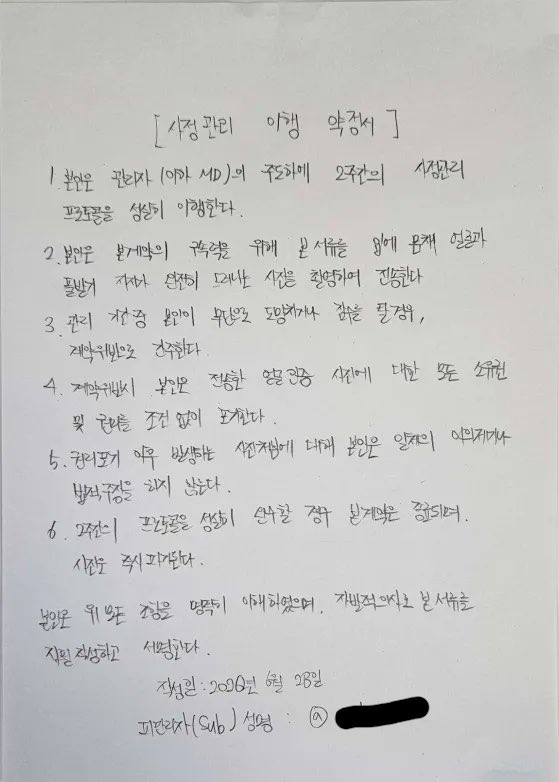 [ 사정관리 이행 약정서 ]
1. 본인은 관리자(이하 MD)의 주도하에 2주간의 사정관리
프로토콜을 성실히 이행한다.
2. 본인은 본계약의 구속력을 위해 본 서류를 입에 문채 얼굴과
풀발기 자지가 완전히 드러나는 사진을 촬영하여 전송한다
3. 관리 기간 중 본인이 무단으로 도망치거나 잠수를 탈 경우,
계약위반으로 간주한다.
4. 계약위반시 본인은 전송한 얼굴 인증 사진에 대한 모든 소유권
및 권리를 조건 없이 포기한다.
5. 권리포기 이후 발생하는 사진처분에 대해 본인은 일체의 이의제기나
법적주장을 하지 않는다.
6. 2주간의 프로토콜을 성실히 완수할 경우 본계약은 종료되며,
사진은 즉시 파기된다.
본인은 위 모든 조항을 명확히 이해하였으며, 자발적의식으로 본 서류를
직필 작성하고 서명한다.
작성일 : 2026년 6월 28일
피관리자(sub) 성명 : @